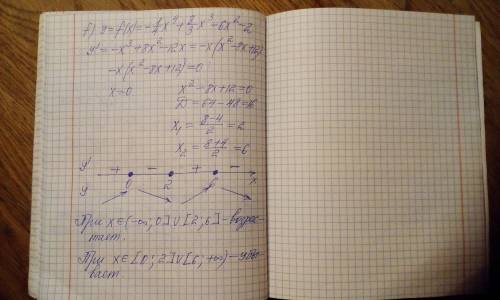 f) y=f(x)=-1/4x⁴+8/3x³-6x²-2
y'=-x³+8x²-12x=-x(x²-8x+12)
-x(x²-8x+12)=0
x=0 x²-8x+12=0
D=64-48=16
x₁=(8-4)/2=2
x₂=(8+4)/2=6
y' + - + -
0 2 6 x
y
При x∈(-∞;0]∪[2;6]-возрас-
тает.
При x∈[0;2]∪[6;+∞)-убы-
вает.